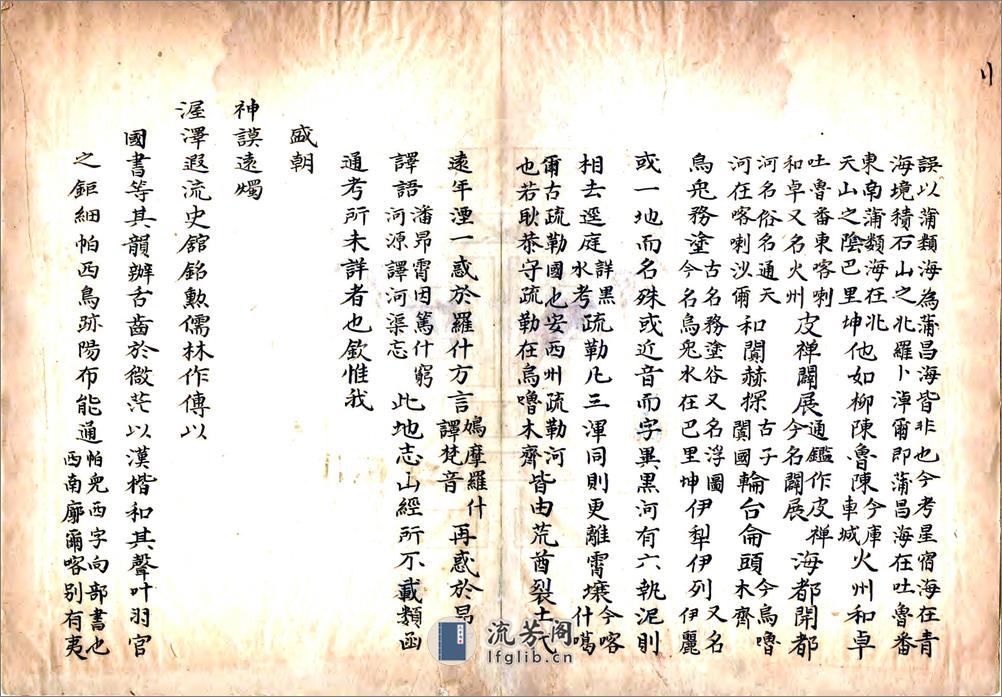 誤以蒲類海為蒲昌海皆非也今考星宿海在青
海境積石山之北羅卜淖爾即蒲昌海在吐魯番
東南蒲類海在北
天山之陰巴里坤
他如柳陳
魯陳今庫
車城
火州和卓
吐魯番東喀喇
和卓又名火州
皮禅闢展
通鑑作皮禅
今名闢展
海都開都
河名俗名通天
河在喀喇沙爾
和闐赫探
古于
闐國
輪台侖頭
今烏嚕
木齊
烏兎務塗
古名務塗谷又名浮圖
今名烏兎水在巴里坤
伊犁伊列
又名
伊麗
或一地而名殊或近音而字異黑河有六執泥則
相去逕庭
詳黑
水考
疏勒凡三渾同則更離霄壤
今喀
什噶
爾古疏勒國也安西州疏勒河
也若耿恭守疏勒在烏嚕木齊
皆由荒酋裂土代
遠年湮一惑於羅什方言
鳩摩羅什
譯梵音
再惑於昂
譯語
潘昂霄因篤什窮
河源譯河渠志
此地志山經所不載類函
通考所未詳者也欽惟我
盛朝
神謨遠燭
渥澤遐流史館銘勲儒林作傳以
國書等其韻辦舌齒於微茫以漢楷和其聲叶羽宮
之鉅細帕西鳥跡陽布能通
帕兜西字向部書也
西南廓爾喀别有夷
流芳阁
lfglib.cn